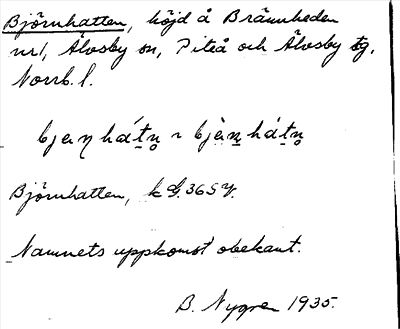 Björnhatten, höjd å Brännheden
nr 1, Älvsby sn, Piteå och Älvsby tg,
Norrb. l.
bjæṇhát̠n̥ ~ bjæ̀n̠hát̠n̥
Björnhatten, k G. 365 V.
Namnets uppkomst obekant.
B. Nygren 1935.